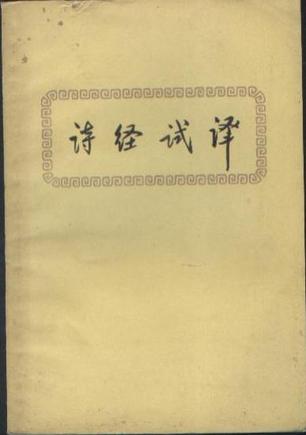 诗经试译